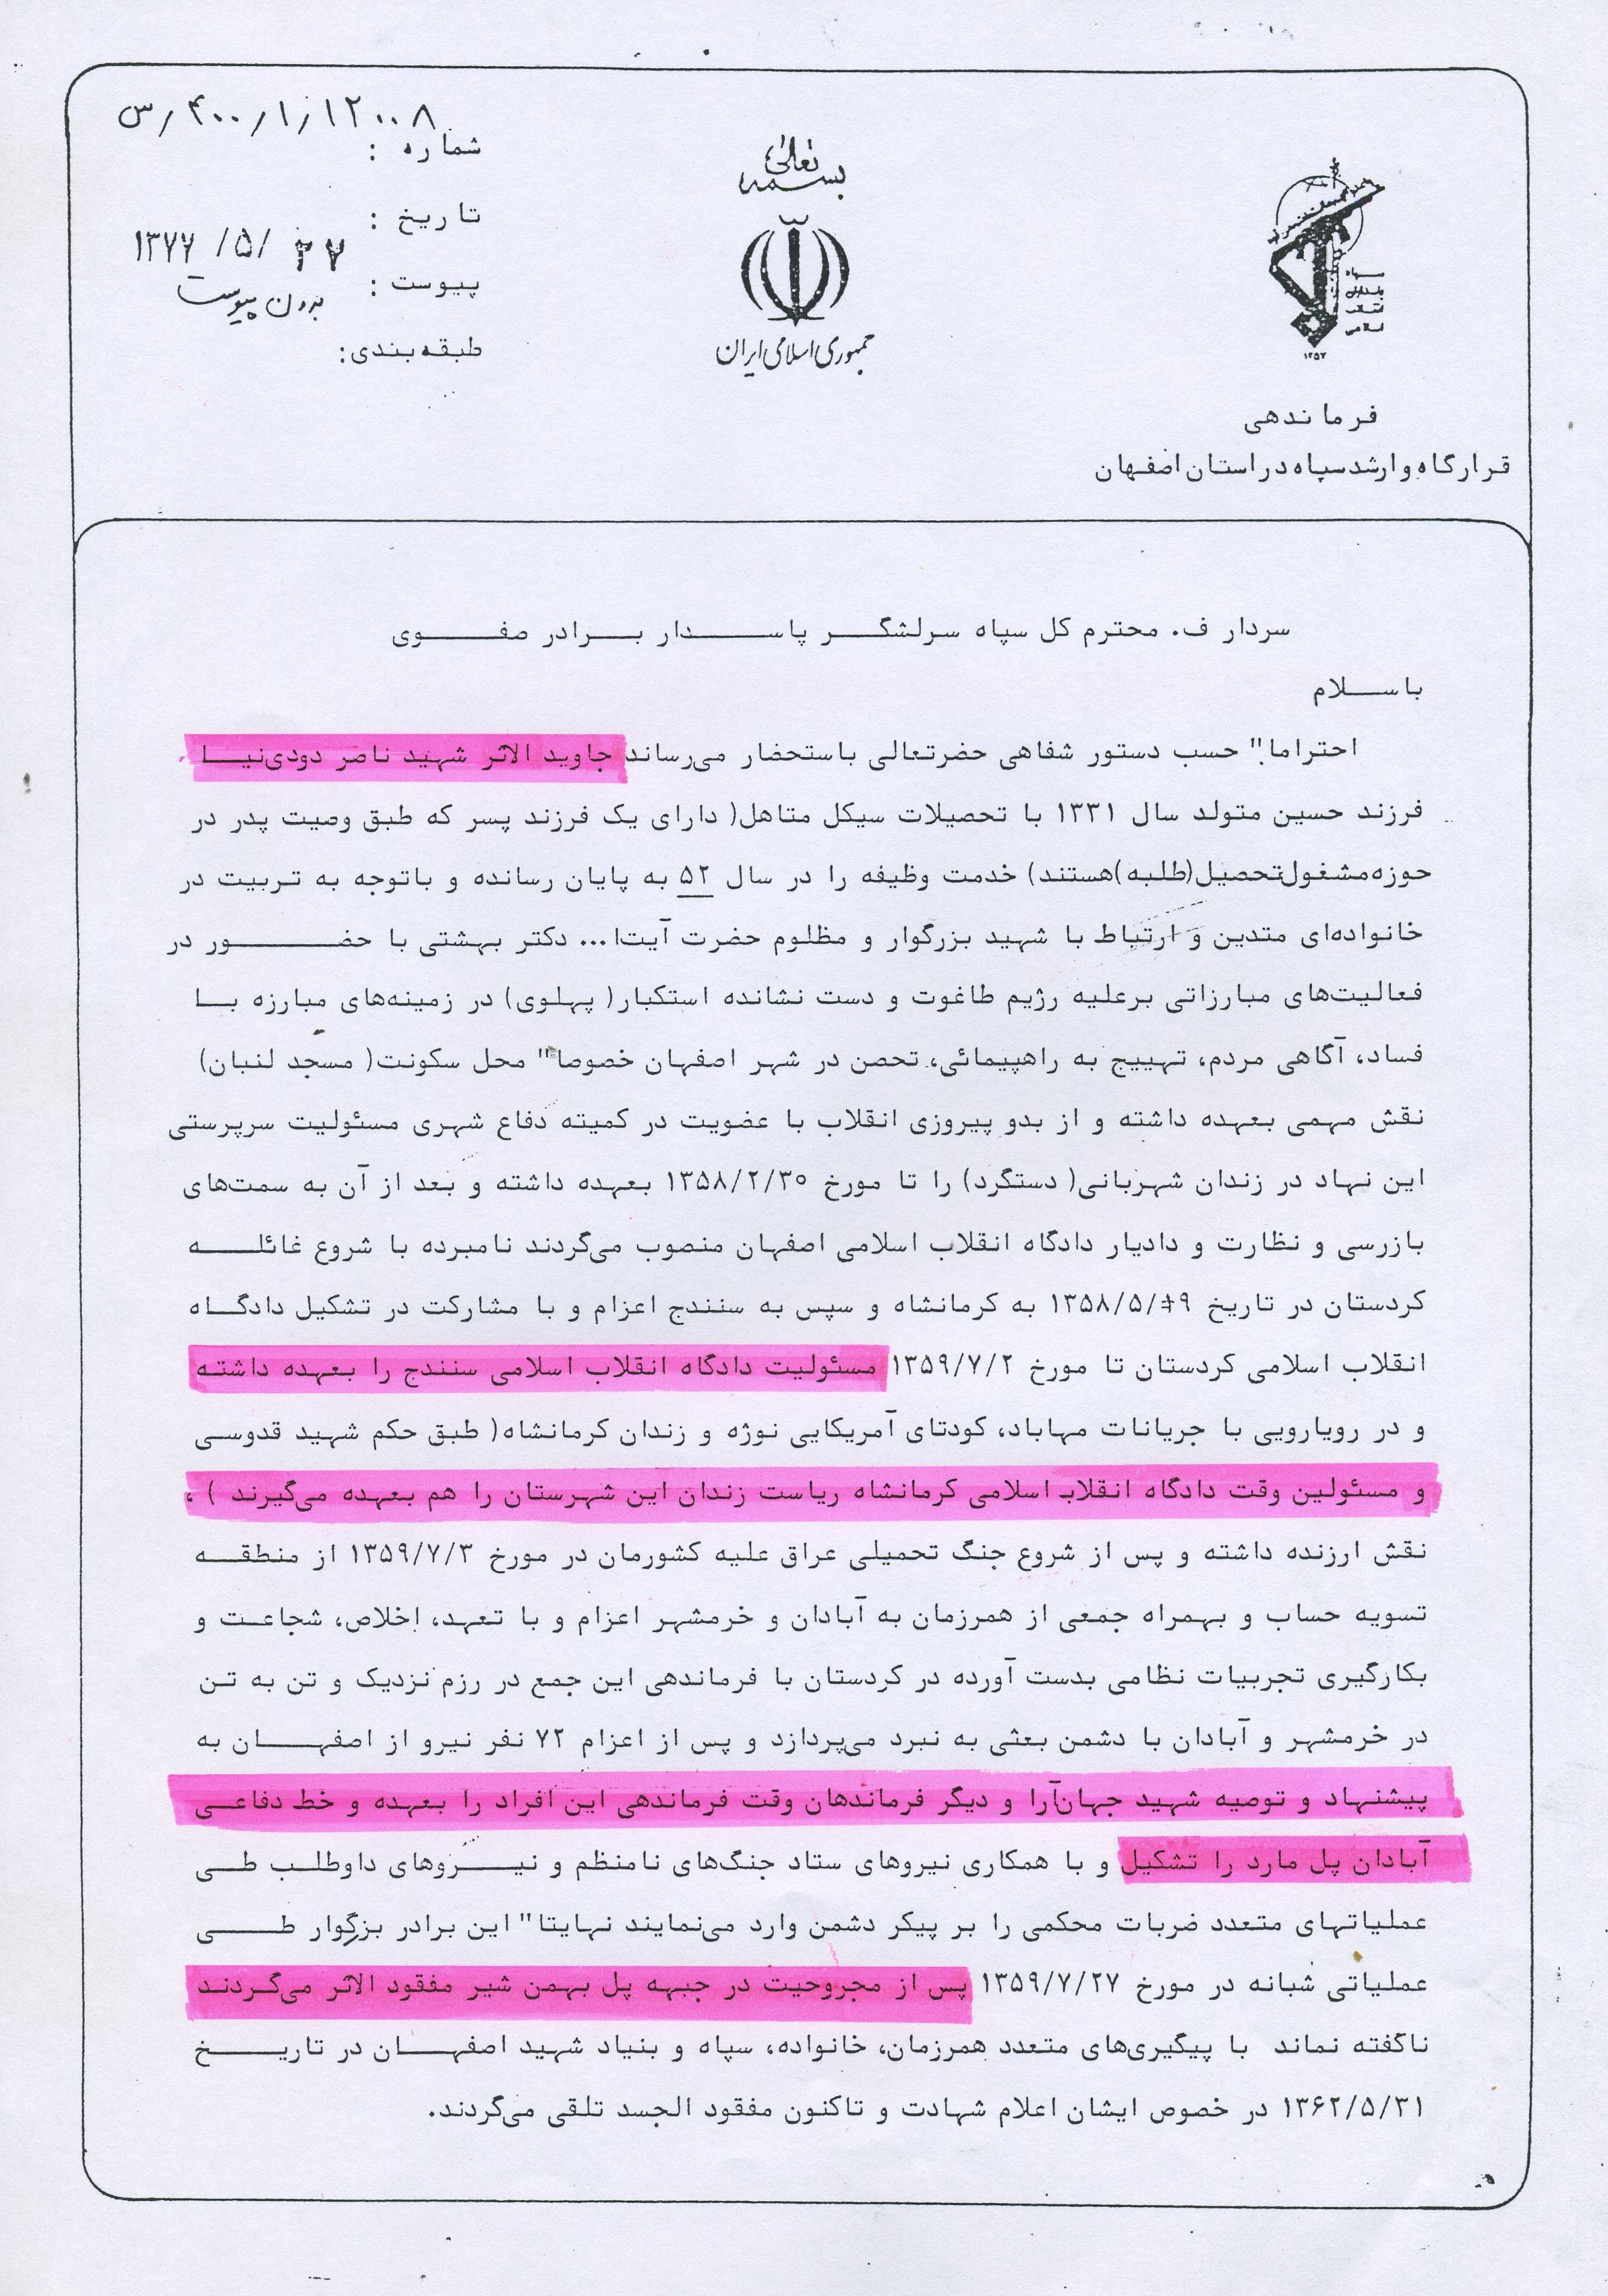 ۴۰۰/۱/۱۲۰۰۸/س
شماره :
بسمه تعالی
تاریخ :
۱۳۷۷ /۵/ ۲۷
پیوست :
بدون پیوست
طبقه‌بندی:
جمهوری اسلامی ایران
سپاه
پاسداران
انقلاب
اسلامی
۱۳۵۷
فرماندهی
قرارگاه وارشد سپاه در استان اصفهان
سردار ف. محترم کل سپاه سرلشگر پاسدار برادر صفوی
باسلام
احتراما" حسب دستور شفاهی حضرتعالی باستحضار می‌رساند جاوید الاثر شهید ناصر دودی‌نیا
فرزند حسین متولد سال ۱۳۳۱ با تحصیلات سیکل متاهل( دارای یک فرزند پسر که طبق وصیت پدر در
حوزه مشغول تحصیل(طلبه)هستند) خدمت وظیفه را در سال ۵۲ به پایان رسانده و باتوجه به تربیت در
خانواده‌ای متدین و ارتباط با شهید بزرگوار و مظلوم حضرت آیت‌ا... دکتر بهشتی با حضور در
فعالیت‌های مبارزاتی برعلیه رژیم طاغوت و دست نشانده استکبار( پهلوی) در زمینه‌های مبارزه با
فساد، آگاهی مردم، تهییج به راهپیمائی، تحصن در شهر اصفهان خصوصا" محل سکونت( مسجد لنبان)
نقش مهمی بعهده داشته و از بدو پیروزی انقلاب با عضویت در کمیته دفاع شهری مسئولیت سرپرستی
این نهاد در زندان شهربانی( دستگرد) را تا مورخ ۱۳۵۸/۲/۳۰ بعهده داشته و بعد از آن به سمت‌های
بازرسی و نظارت و دادیار دادگاه انقلاب اسلامی اصفهان منصوب می‌گردند نامبرده با شروع غائله
کردستان در تاریخ ۱۳۵۸/۵/۲۹ به کرمانشاه و سپس به سنندج اعزام و با مشارکت در تشکیل دادگاه
انقلاب اسلامی کردستان تا مورخ ۱۳۵۹/۷/۲ مسئولیت دادگاه انقلاب اسلامی سنندج را بعهده داشته
و در رویارویی با جریانات مهاباد، کودتای آمریکایی نوژه و زندان کرمانشاه( طبق حکم شهید قدوسی
و مسئولین وقت دادگاه انقلاب اسلامی کرمانشاه ریاست زندان این شهرستان را هم بعهده می‌گیرند ) ،
نقش ارزنده داشته و پس از شروع جنگ تحمیلی عراق علیه کشورمان در مورخ ۱۳۵۹/۷/۳ از منطقه
تسویه حساب و بهمراه جمعی از همرزمان به آبادان و خرمشهر اعزام و با تعهد، اخلاص، شجاعت و
بکارگیری تجربیات نظامی بدست آورده در کردستان با فرماندهی این جمع در رزم نزدیک و تن به تن
در خرمشهر و آبادان با دشمن بعثی به نبرد می‌پردازد و پس از اعزام ۷۲ نفر نیرو از اصفهان به
پیشنهاد و توصیه شهید جهان‌آرا و دیگر فرماندهان وقت فرماندهی این افراد را بعهده و خط دفاعی
آبادان پل مارد را تشکیل و با همکاری نیروهای ستاد جنگ‌های نامنظم و نیروهای داوطلب طی
عملیاتهای متعدد ضربات محکمی را بر پیکر دشمن وارد می‌نمایند نهایتا" این برادر بزرگوار طی
عملیاتی شبانه در مورخ ۱۳۵۹/۷/۲۷ پس از مجروحیت در جبهه پل بهمن شیر مفقود الاثر می‌گردند
ناگفته نماند با پیگیری‌های متعدد همرزمان، خانواده، سپاه و بنیاد شهید اصفهان در تاریخ
۱۳۶۲/۵/۳۱ در خصوص ایشان اعلام شهادت و تاکنون مفقود الجسد تلقی می‌گردند.